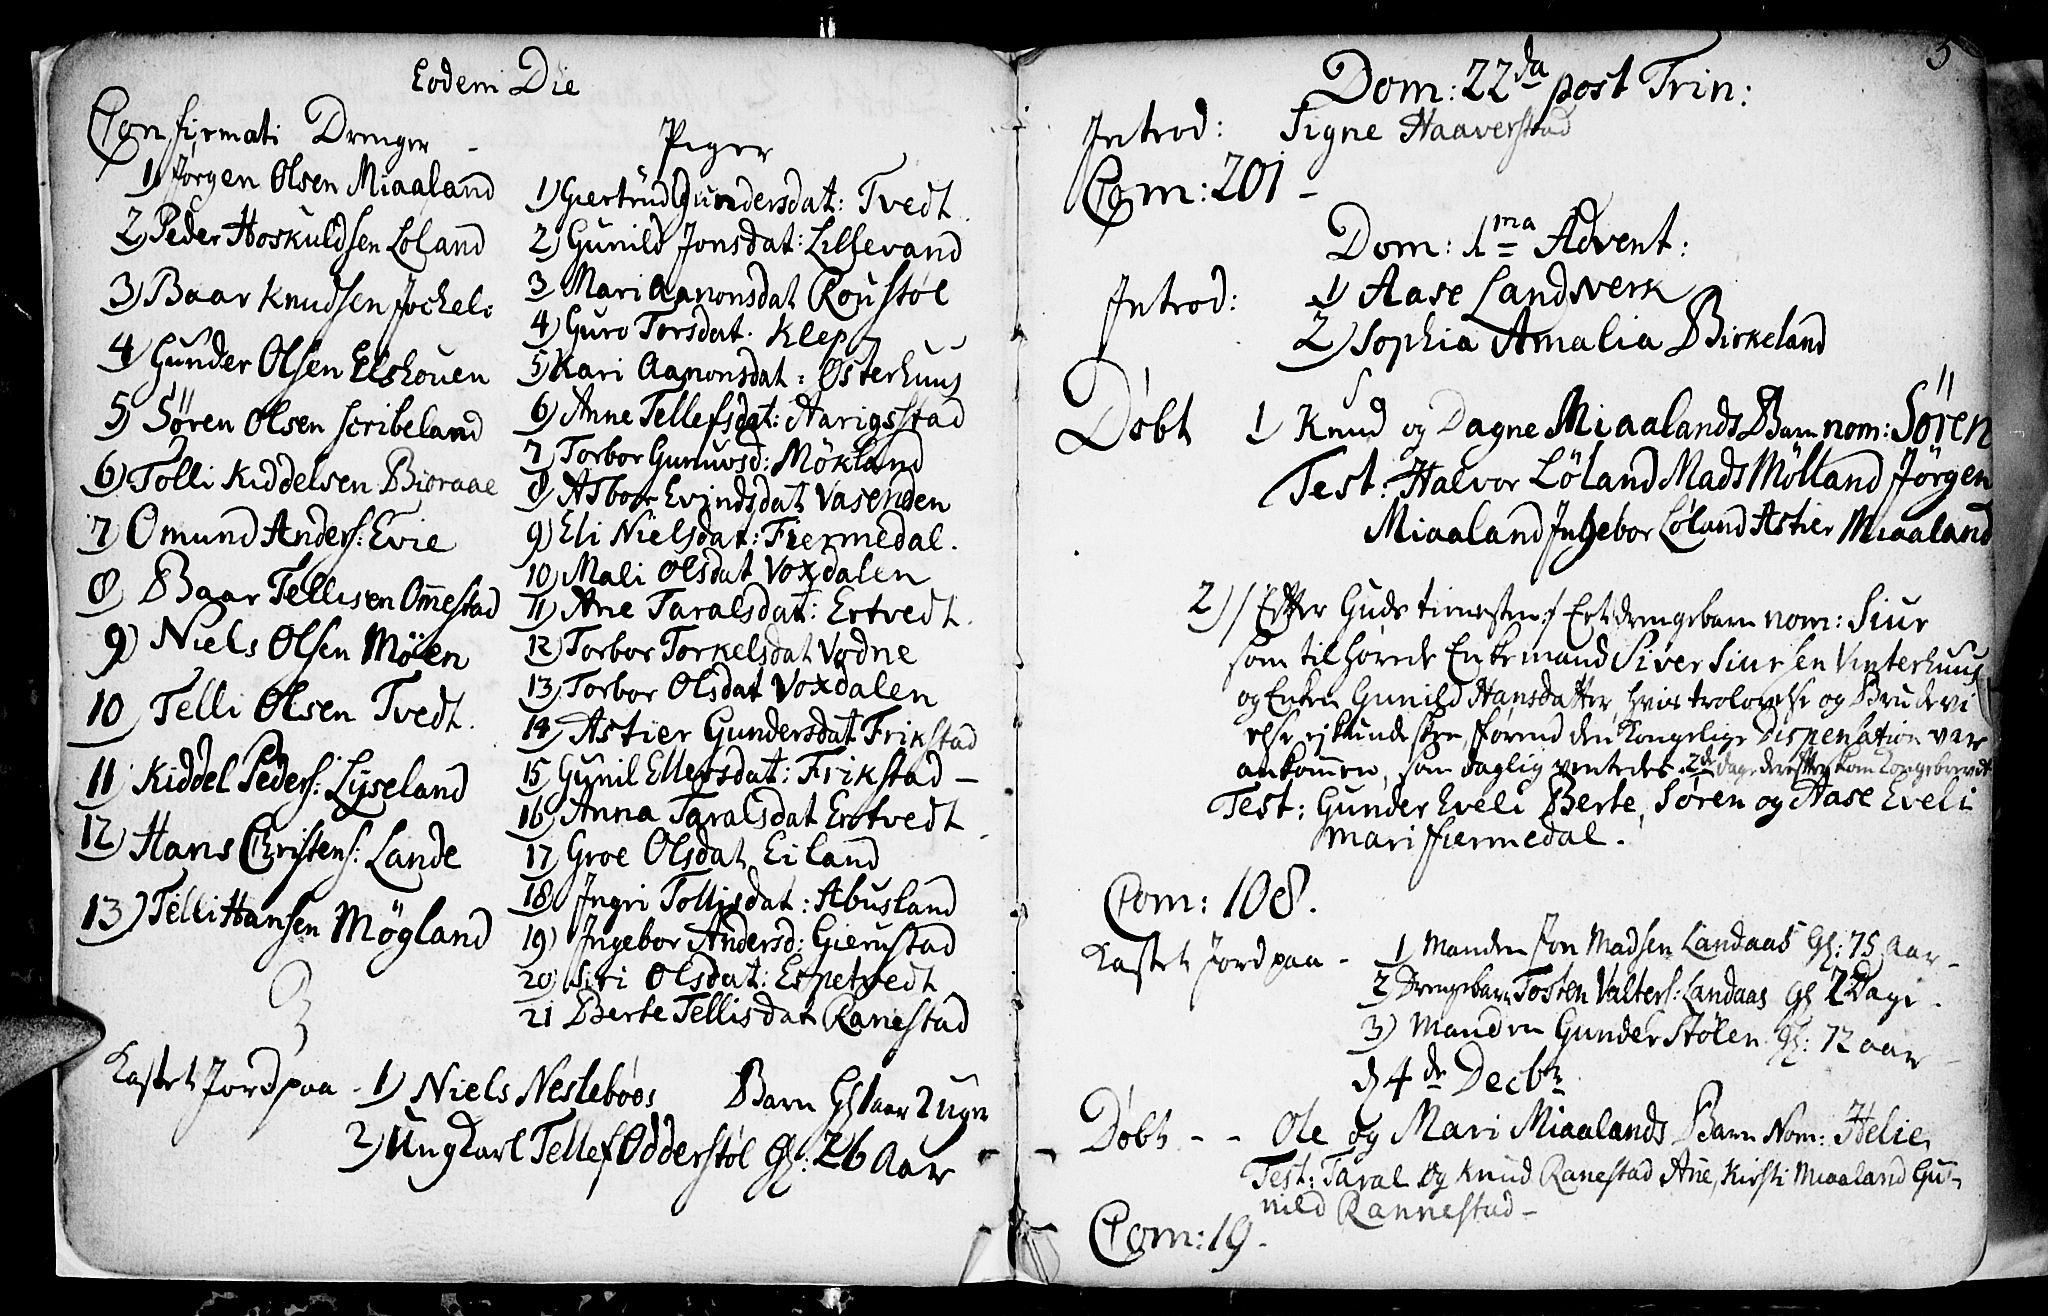 Eodem Die
Confirmati Drenger
1) Jørgen Olsen Miaaland
2) Peder Hoskuldsen Løland
3) Baar Knudsen Jocheli
4 Gunder Olsen Elshouen
5) Søren Olsen Scribeland
6) Tolli Kiddelsen Bioraae
7 Omund Anders: Evie
8 Baar Tellisen Omestad
9) Niels Olsen Möen
10 Telli Olsen Tvedt.
11 Kiddel Peders: Lyseland
12) Hans Christens: Lande
13) Telli Hansen Mögland
Piger
1) Giertrud Gundersdat: Tvedt.
2) Gunild Jonsdat: Lillevand
3 Mari Aanonsdat Roustøl
4) Guro Torsdat. Klep
5) Kari Aanonsdat: Østerhuus
6) Anne Tellefsdat: Aarigsstad
7 Torbor Gunuvsd: Mökland
8) Asboor Evindsdat Vasenden
9) Eli Nielsdat: Fiermedal.
10) Mali Olsdat Voxdalen
11) Ane Taralsdat: Ertvedt.
12) Torbor Torkelsdat Vodne
13) Torbor Olsdat Voxdalen
14) Astier Gundersdat Frikstad
15 Gunil Ellersdat: Frikstad —
16) Anna Taralsdat Ertvedt
17 Groe Olsdat Eiland
18) Ingri Tollisdat: Abusland
19) Ingebor Andersd: Gierustad
20) Siri Olsdat: Espetvedt
21 Berte Tellisdat Ranestad
Kastet Jord paa - 1) Niels Neslebøes Barn Gl 1 aar 2 ugr
2) Ung Karl Tellef Odderstøl Gl: 26 Aar
5
Dom: 22da post Trin:
Introd: Signe Haaverstad
Com: 201 -
Dom: 1ma Advent:
Introd: 1) Aase Landsverk
2) Sophia Amalia Birkeland
Døbt 1 Knud og Dagne Miaalands Barn nom: Søren
Test: Halvor Löland Mads Mölland Jørgen
Miaaland Ingebor Løland Astier Miaaland
2) /: Efter Guds tienesten :/ Et drengebarn nom: Siur
som tilhørde Enkemand Siver Siursen Vinterhuus
og Enken Gunild Hansdatter, hvis trolovelse og Brudevi
else ej kunde skee, førend den Kongelige Dispensation var
ankommen, som daglig ventedes. 2de dage derefter kom Kongebrevet
Test: Gunder Eveli Berte, Søren og Aase Eveli
Mari Fiermedal.
Com: 108.
Kastet Jord paa - 1 Manden Jon Madsen Landaas Gl: 75 Aar -
2 Drengebarn Tosten Valters: Landaas Gl 2 Dage -
3) Manden Gunder Stølen. Gl: 72 aar -
d 4de Decbr
Døbt - - Ole og Mari Miaalands Barn Nom: Helie
Test: Taral og Knud Ranestad Ane, Kirsti Miaaland Gu-
nild Rannestad -
Com: 19 -